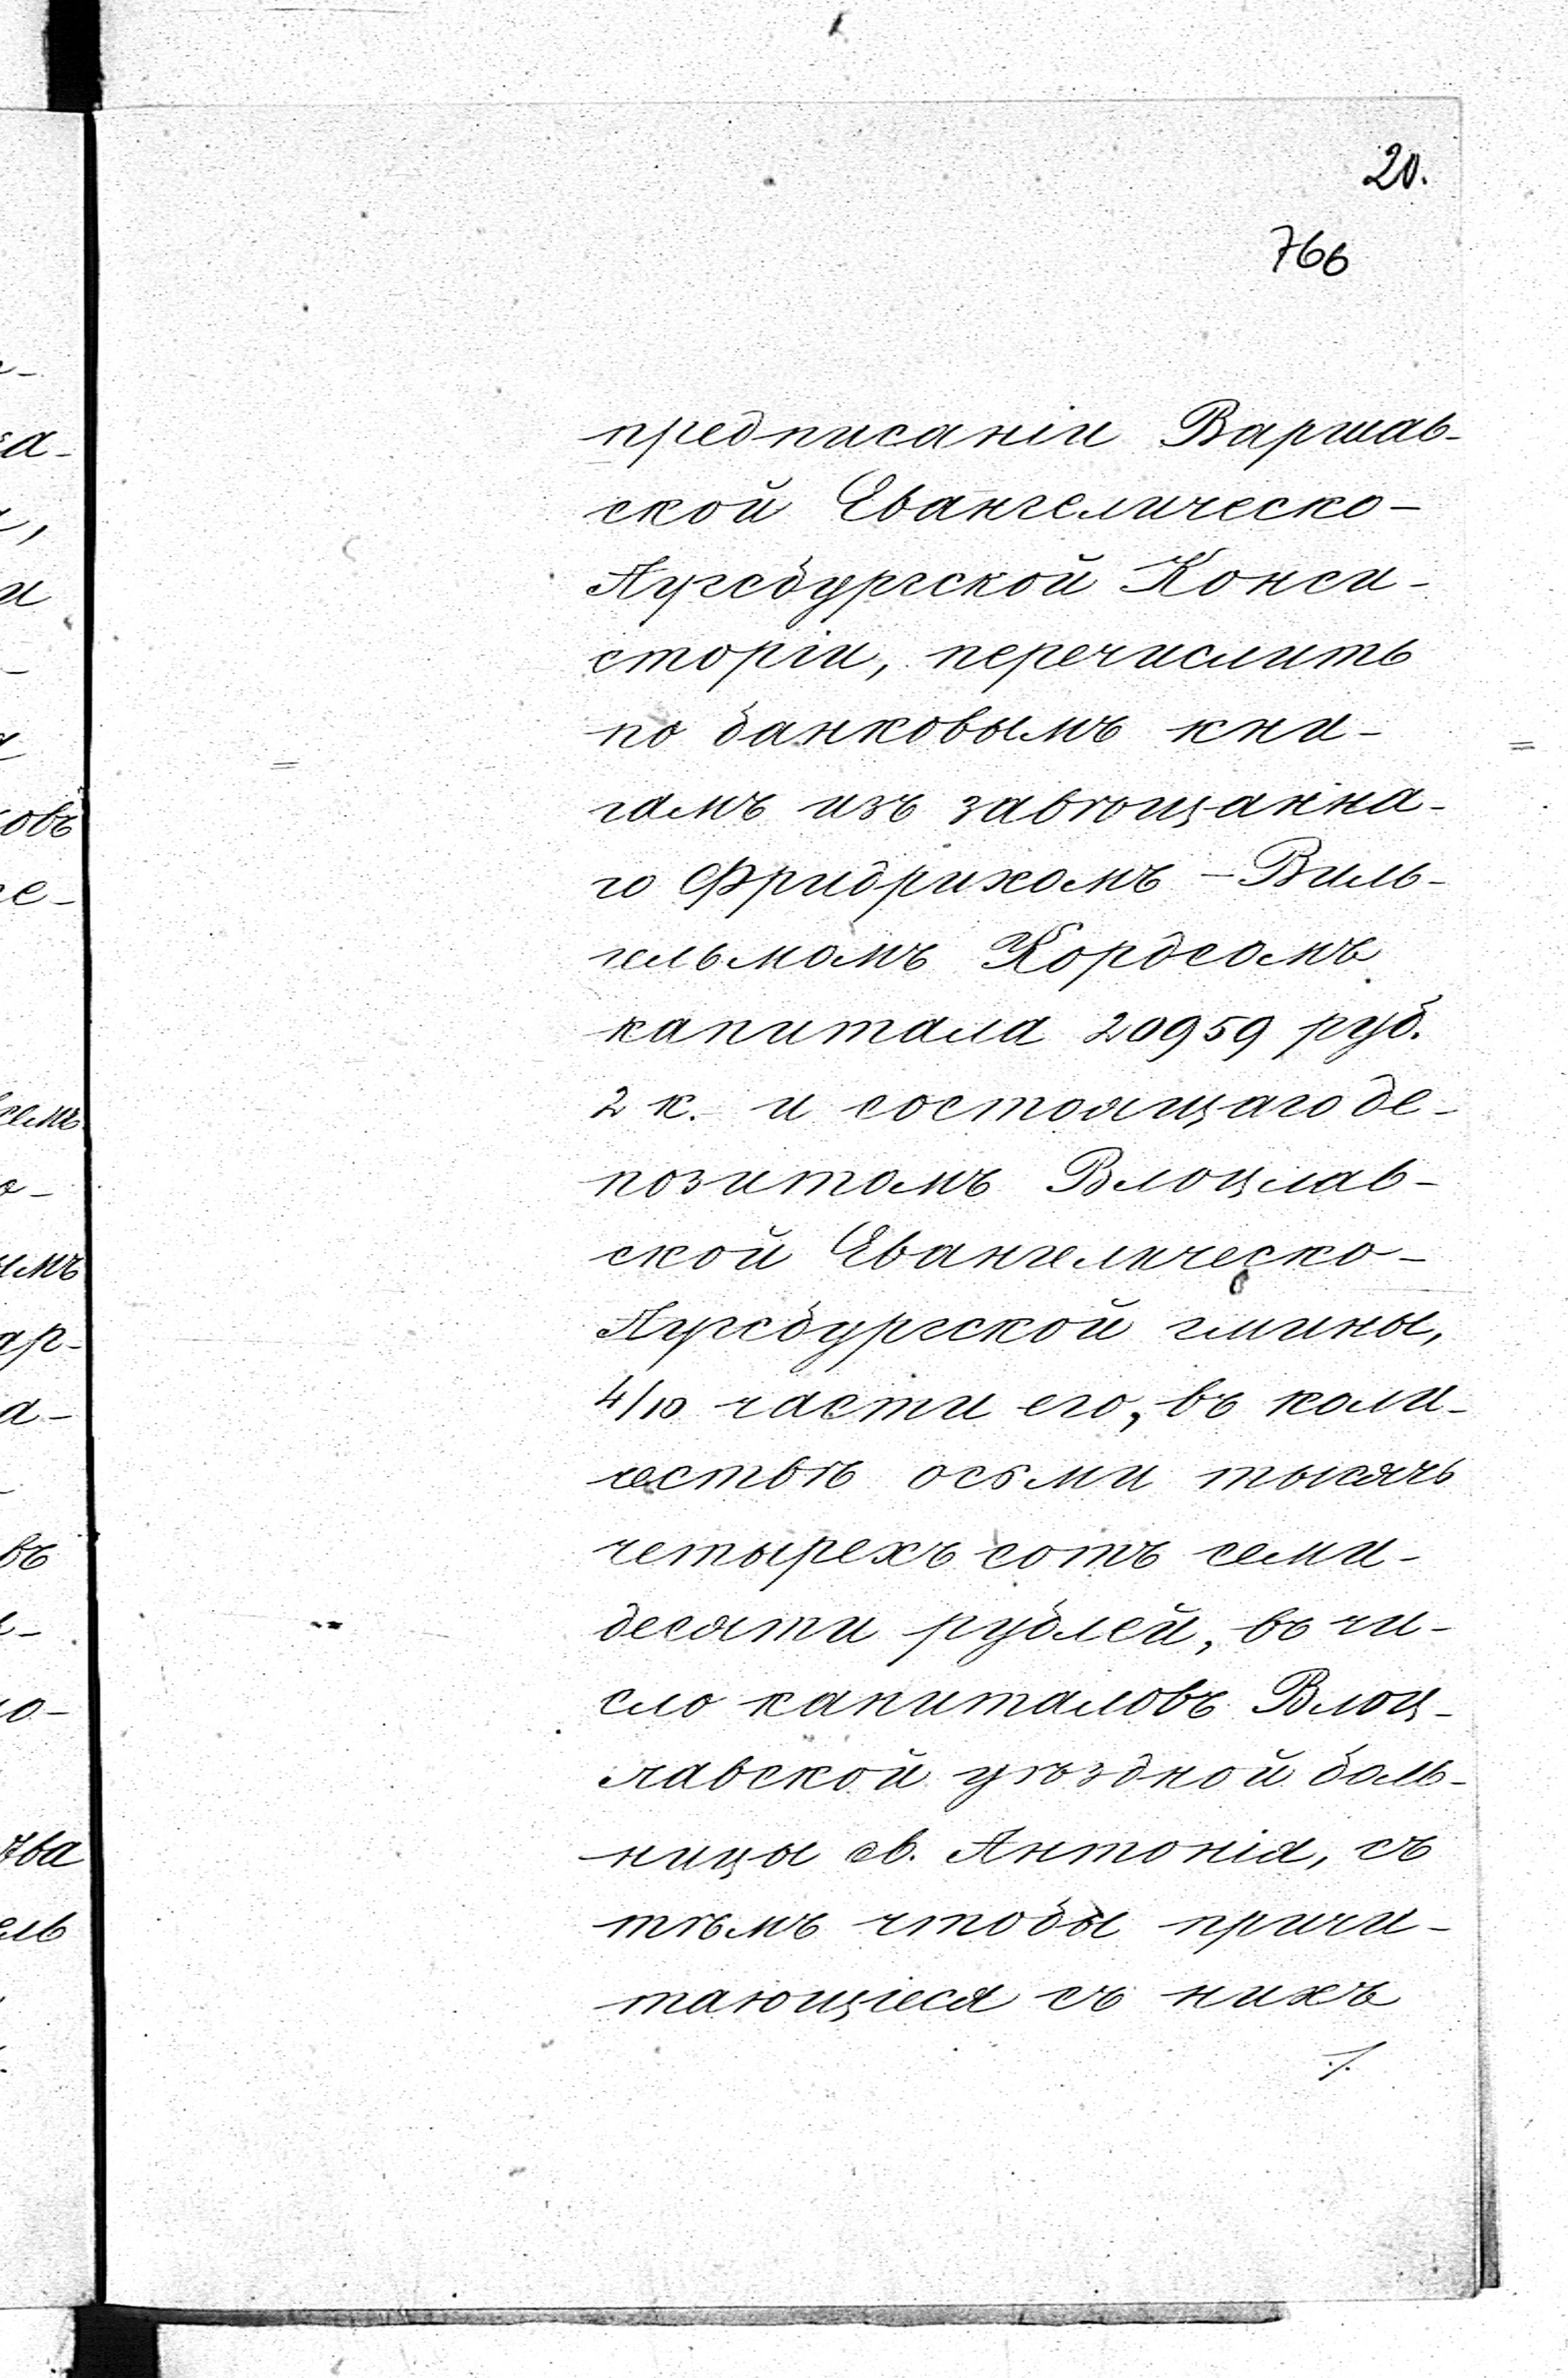 20.
766
предписаніи Варшав-
ской Евангелическо-
Аугсбургской Конси-
сторіи, перечислить
по банковымъ кни-
гамъ изъ завѣщанна-
го Фридрихомъ-Виль-
гельмомъ Кордсомъ
капитала 20959 руб.
2 к. и состоящаго де-
позитомъ Влоцлав-
ской Евангелическо-
Аугсбургской гмины,
4/10 части его, въ коли-
чествѣ осьми тысячъ
четырехъ сотъ семи-
десяти рублей, въ чи-
сло капиталовъ Влоц-
лавской уѣздной боль-
ницы св. Антонія, съ
тѣмъ чтобы причи-
тающіеся съ нихъ
./.